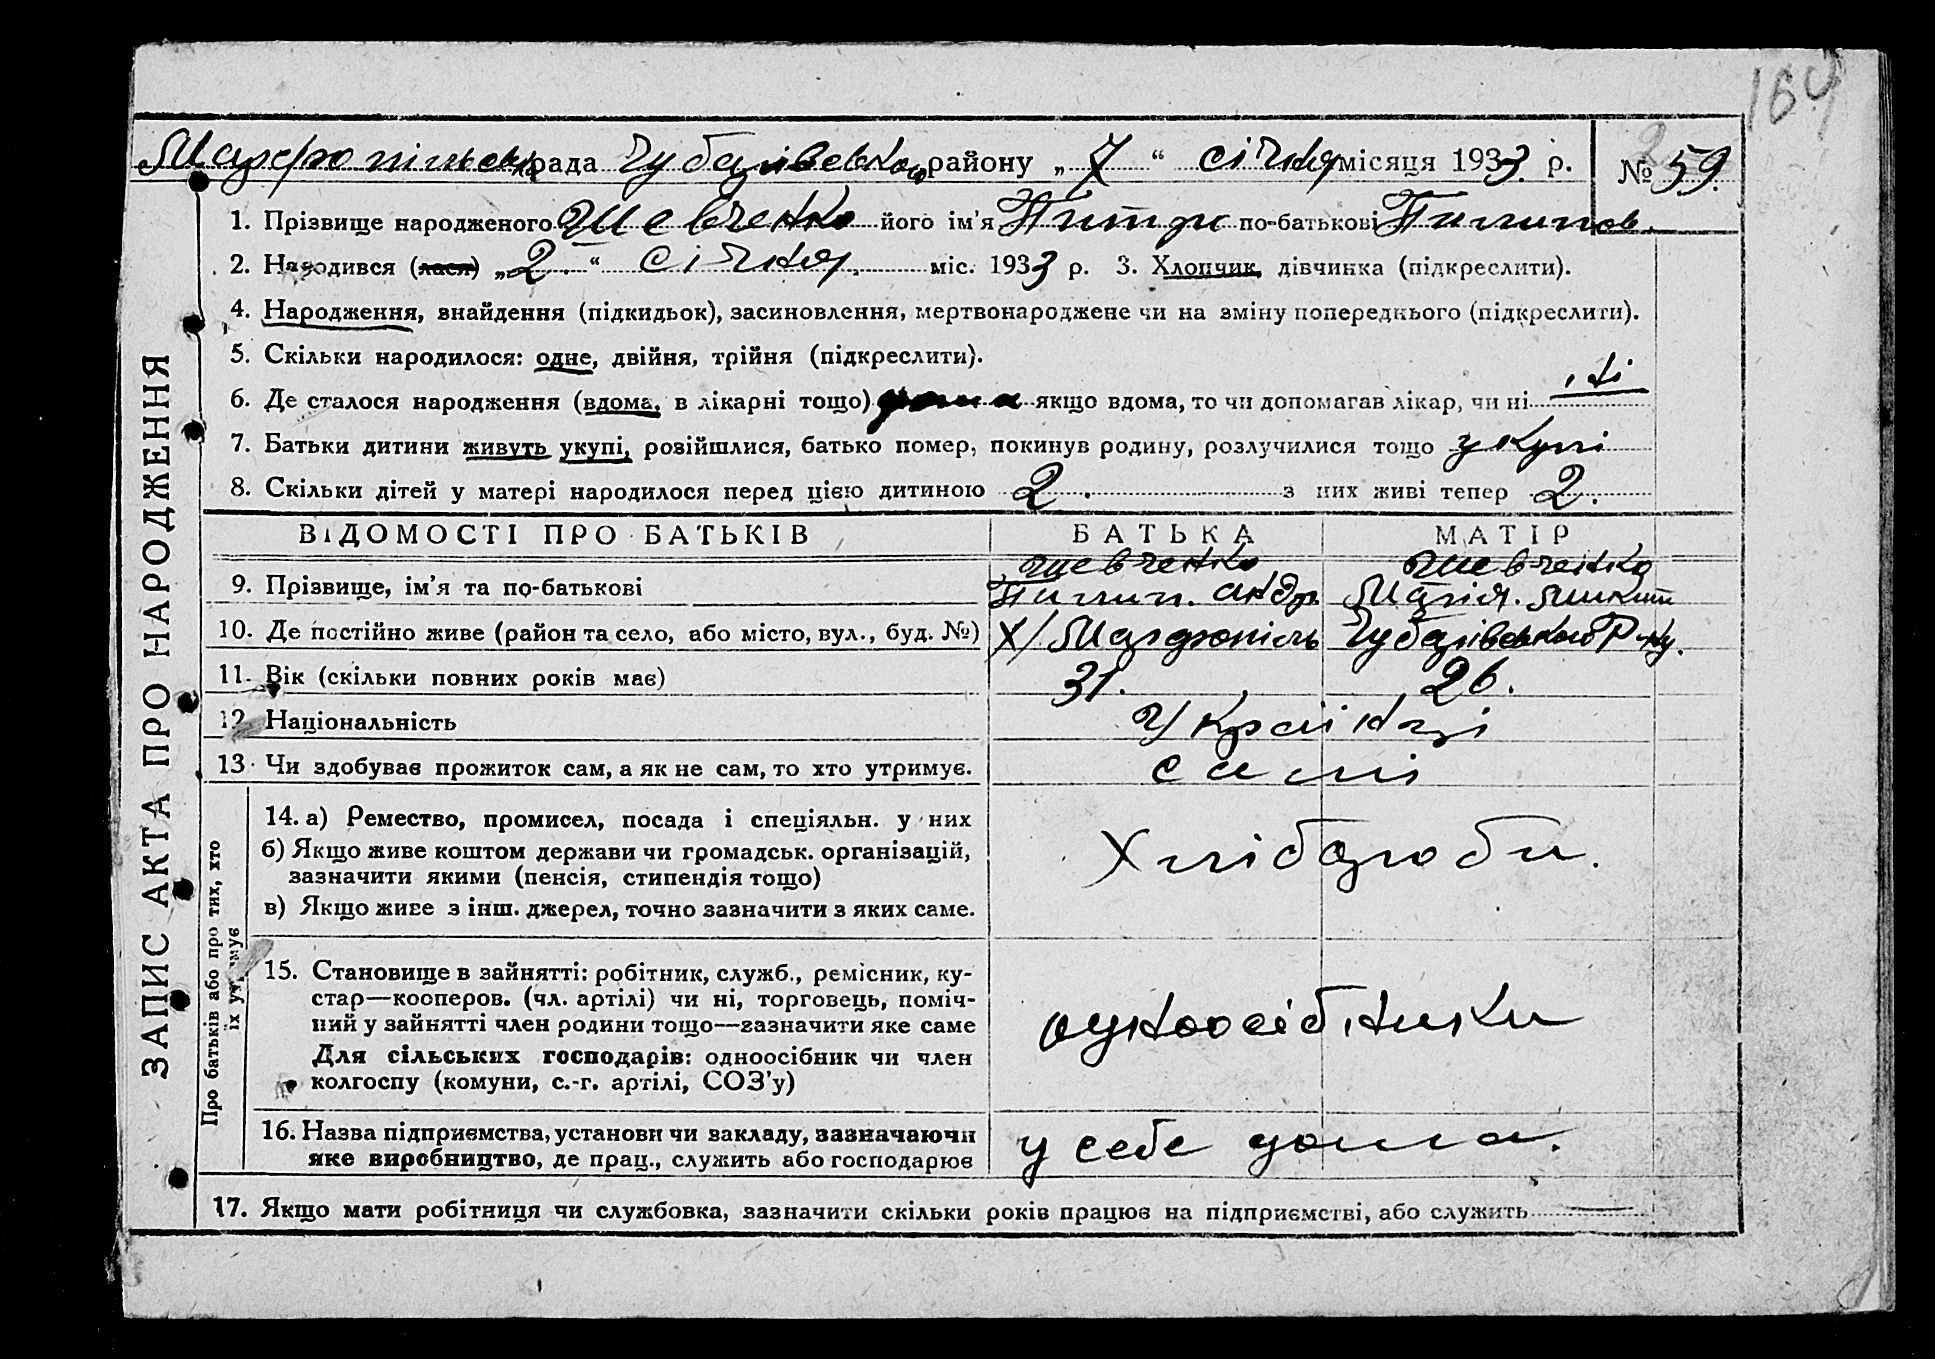 164
рада Чубарівського району „ 7 “ січня місяця 1933 р. № 59.
1. Прізвище народженого Шевченко його ім’я Питро по-батькові Пилипов.
2. Народився (лася) „ 2. “ січня. міс. 1933 р. 3. Хлопчик, дівчинка (підкреслити).
4. Народження, знайдення (підкидьок), засиновлення, мертвонароджене чи на зміну попереднього (підкреслити).
5. Скільки народилося: одне, двійня, трійня (підкреслити).
6. Де сталося народження (вдома, в лікарні тощо) дома якщо вдома, то чи допомагав лікар, чи ні ні
7. Батьки дитини живуть укупі, розійшлися, батько помер, покинув родину, розлучилися тощо укупі
8. Скільки дітей у матері народилося перед цією дитиною 2. з них живі тепер 2.
ВІДОМОСТІ ПРО БАТЬКІВ БАТЬКА МАТІР
9. Прізвище, ім’я та по-батькові Шевченко Пилип. Андр. Шевченко Марія. Микит
10. Де постійно живе (район та село, або місто, вул., буд. №) Х/ Чубарівського Р-ну.
11. Вік (скільки повних років має) 31. 26.
12. Національність Українці
13. Чи здобуває прожиток сам, а як не сам, то хто утримує. самі
Про батьків або про тих, хто їх утримує
14. а) Ремество, промисел, посада і спеціяльн. у них Хлібороби.
б) Якщо живе коштом держави чи громадськ. організацій,
зазначити якими (пенсія, стипендія тощо)
в) Якщо живе з інш. джерел, точно зазначити з яких саме.
15. Становище в зайнятті: робітник, служб., ремісник, ку-
стар—кооперов. (чл. артілі) чи ні, торговець, поміч-
ний у зайнятті член родини тощо—зазначити яке саме
одноосібники
Для сільських господарів: одноосібник чи член
колгоспу (комуни, с.-г. артілі, СОЗ’у)
16. Назва підприємства, установи чи закладу, зазначаючи
яке виробництво, де прац., служить або господарює
у себе дома.
17. Якщо мати робітниця чи службовка, зазначити скільки років працює на підприємстві, або служить —
ЗАПИС АКТА ПРО НАРОДЖЕННЯ